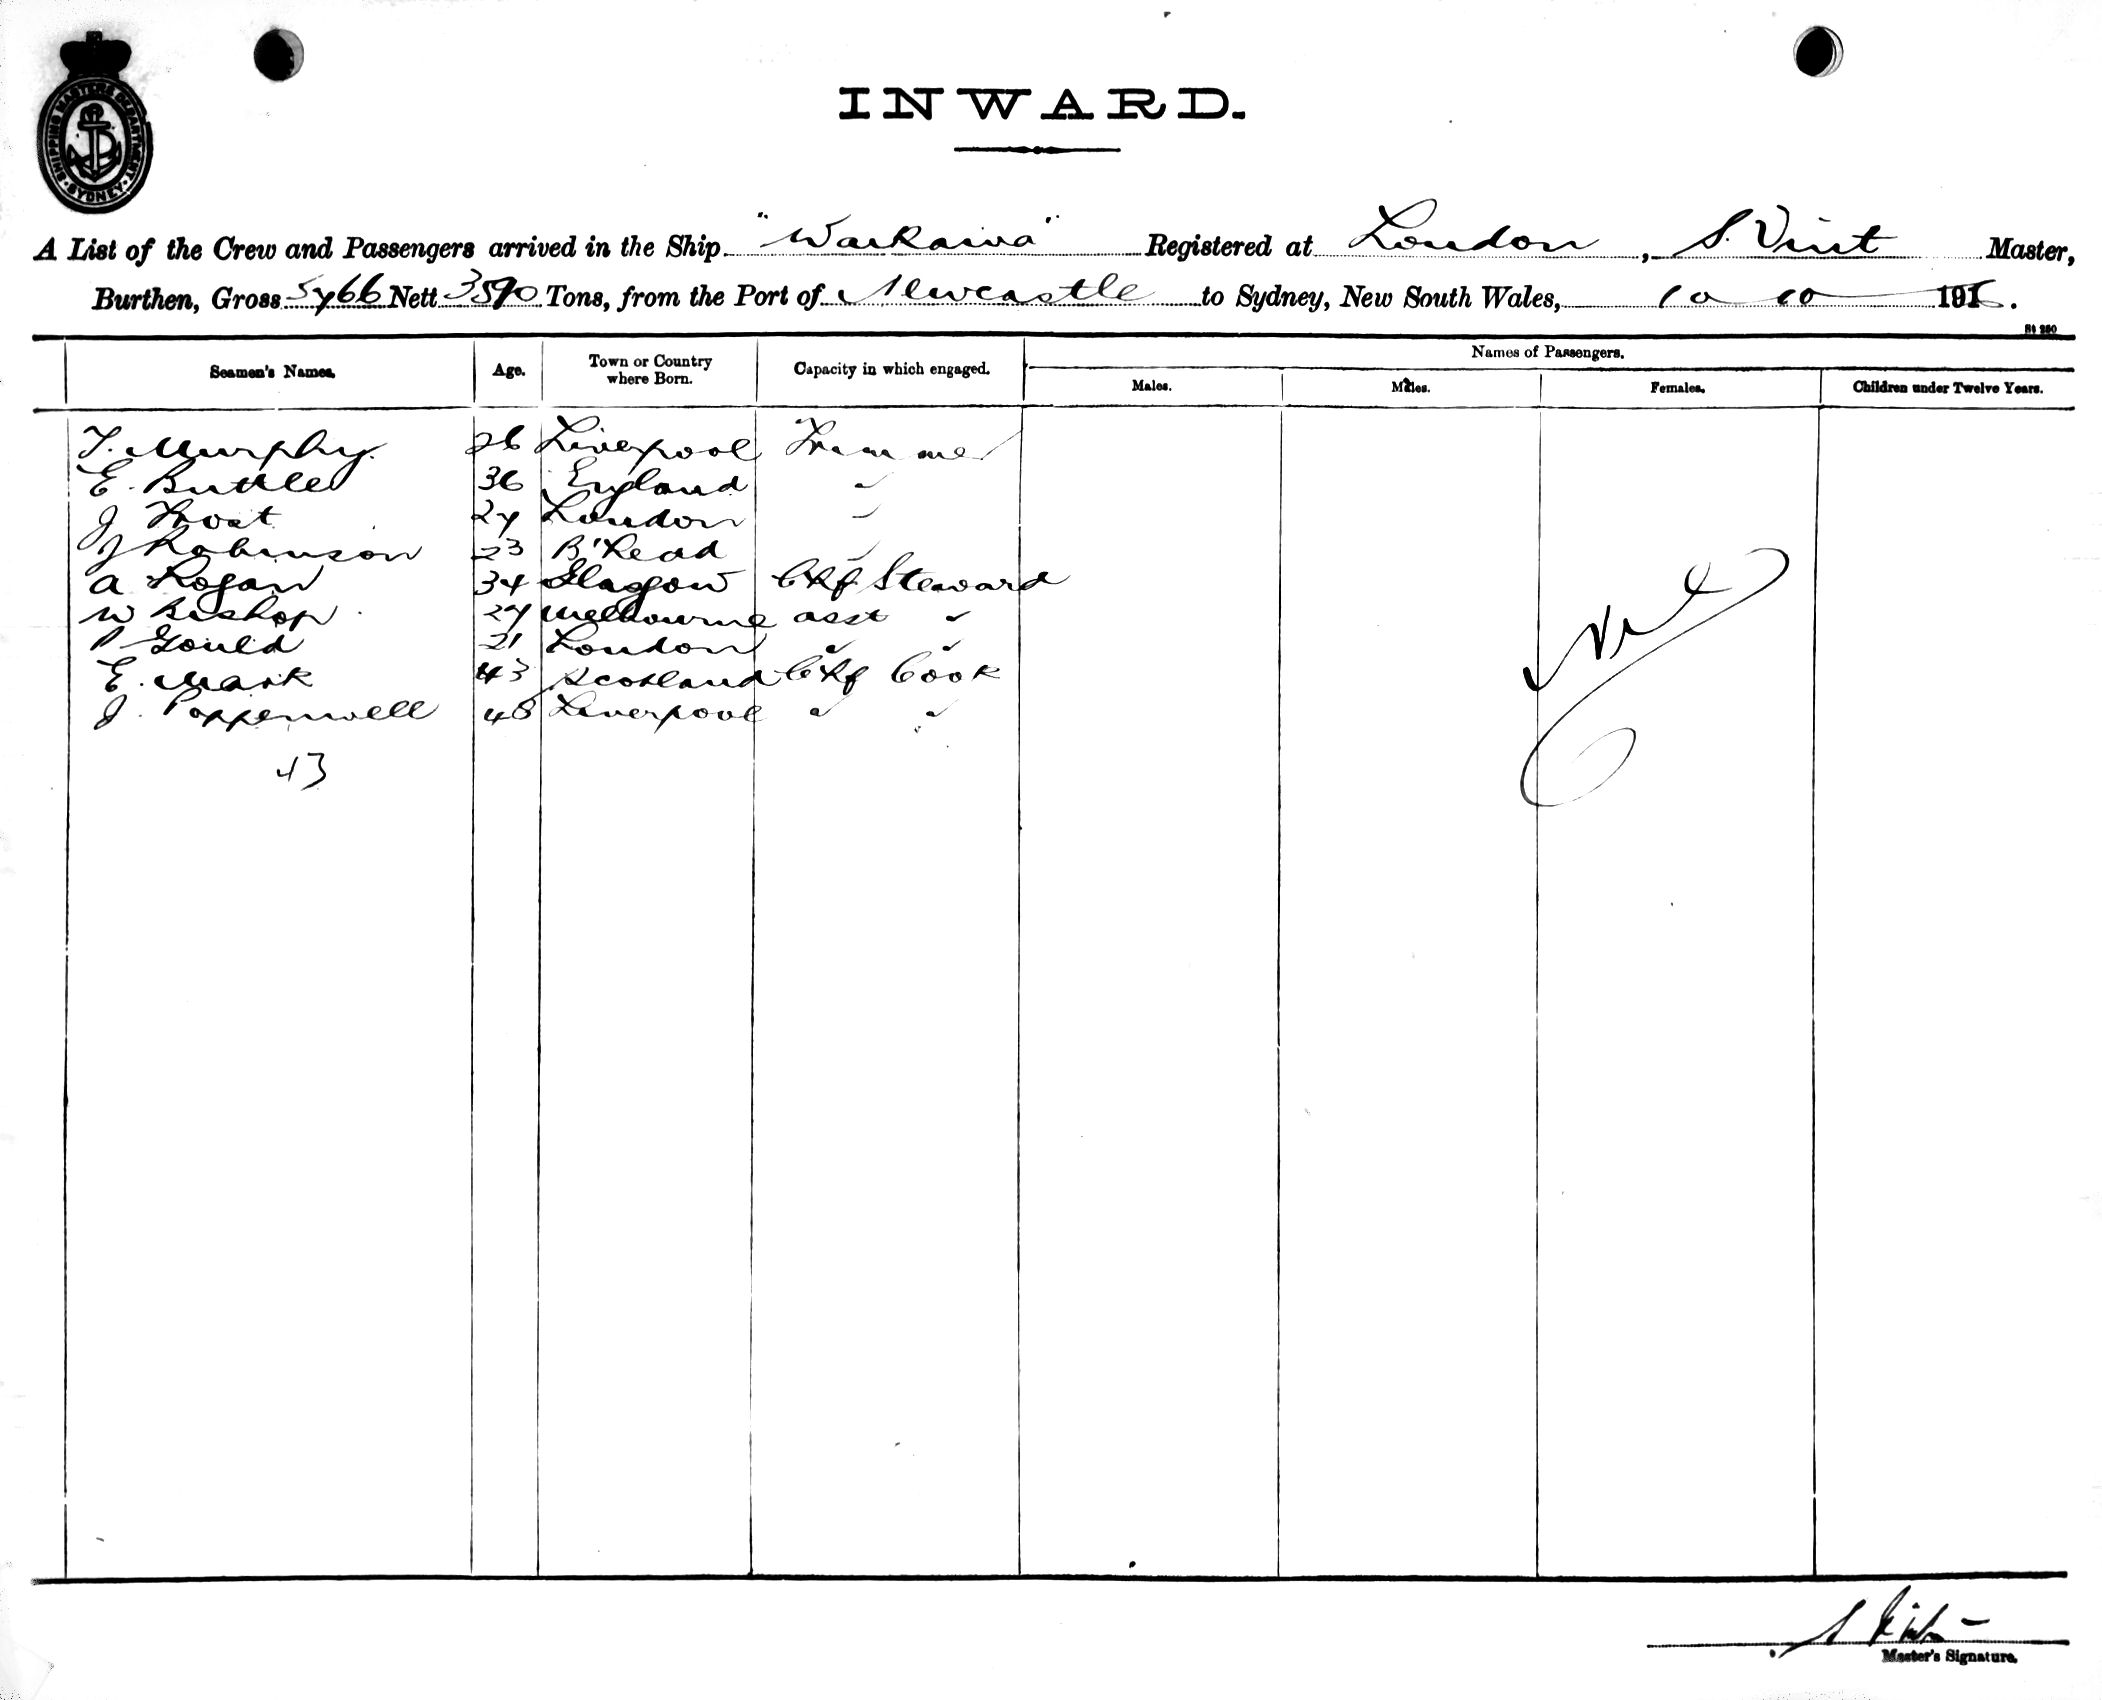 SHIPPING MASTERS DEPARTMENT SYDNEY
INWARD.
A List of the Crew and Passengers arrived in the Ship "Waikawa" Registered at London, S. Vint Master,
Burthen, Gross 5766 Nett 3590 Tons, from the Port of Newcastle to Sydney, New South Wales, 10 10 1916.
St 280
Seamen's Names. Age. Town or Country where Born. Capacity in which engaged. Names of Passengers.
Males. Males. Females. Children under Twelve Years.
T. Murphy. 26 Liverpool Trimmer
E. Buttle 36 England "
J Frost 27 London "
J Robinson 23 B'head "
A Logan 34 Glasgow Chf Steward
W Bishop 27 Melbourne asst "
P Gould 21 London " "
E. Mark 43 Scotland Chf Cook
J. Popperwell 48 Liverpool " "
Nil
43
S Vint
Master's Signature.